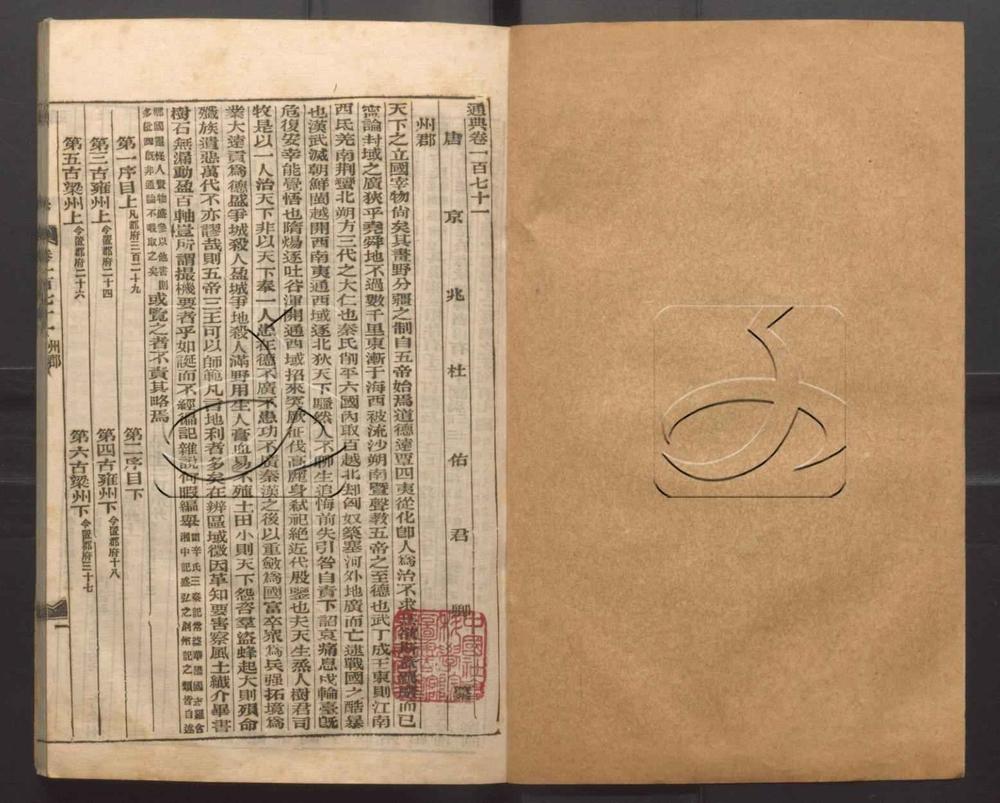 通典卷一百七十一
唐京兆杜佑君卿纂
州郡
天下之立國宰物尚矣其畫野分疆之制自五帝始焉道德遠覃四夷從化卽人爲治不求其欲斯蓋而已
論封域之廣狹乎堯舜地不過數千里東漸于海西被流沙朔南暨聲教五帝之至德也武丁成王東則江南
西氐羌南荆蠻北朔方三代之大仁也秦氏削平六國內取百越北却匈奴築塞河外地廣而亡逮戰國之酷暴
也漢武滅朝鮮閩越開西南夷通西域逐北狄天下騷然人不聊生追悔前失引咎自責下詔哀痛息戍輪臺旣
危復安幸能覺悟也隋煬逐吐谷渾開通西域招來突厥征伐高麗身弑祀絶近代殷鑒也夫天生烝人樹君司
牧是以一人治天下非以天下奉一人患在德不廣不患功不廣秦漢之後以重斂爲國富卒衆爲兵强拓境爲
業大遠貢爲德盛爭城殺人盈城爭地殺人滿野用生人膏血易不殖土田小則天下怨咨羣盜蜂起大則殞命
殲族遺惡萬代不亦謬哉則五帝三王可以師範凡言地利者多矣在辨區域徵因革知要害察風土纖介畢書
樹石無漏動盈百軸豈所謂撮機要者乎如誕而不經徧記雜說何暇編舉謂辛氏三秦記常璩華陽國志羅含湘中記盛弘之荆州記之類皆自述
鄉國靈怪人賢物盛參以他書則多紕謬旣非通論不暇取之矣或覽之者不責其略焉
第一序目上凡郡府三百二十九
第二序目下
第三古雍州上今置郡府二十四
第四古雍州下今置郡府十八
第五古梁州上今置郡府二十六
第六古梁州下今置郡府三十七
卷一百七十一
州郡
一